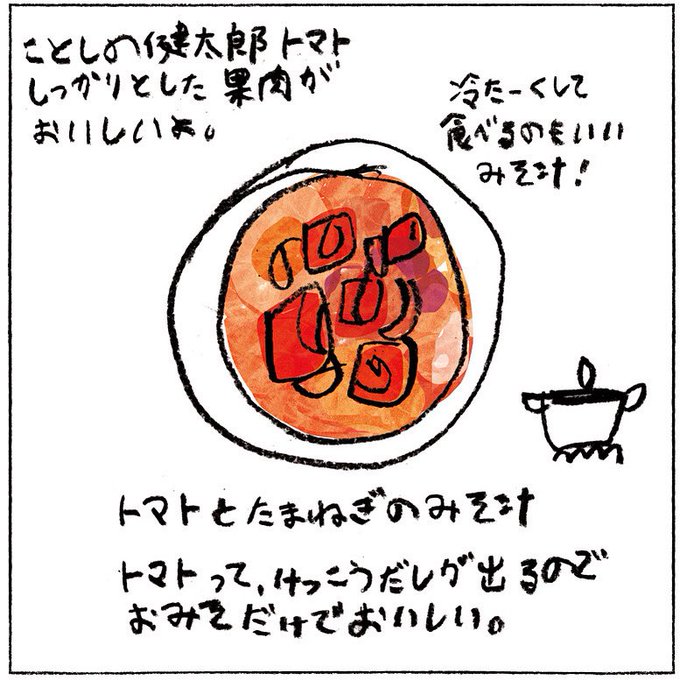 ことしの健太郎トマト
しっかりとした果肉が
おいしいよ。
冷たーくして
食べるのもいい
みそ汁!
トマトとたまねぎのみそ汁
トマトって、けっこうだしが出るので
おみそだけでおいしい。